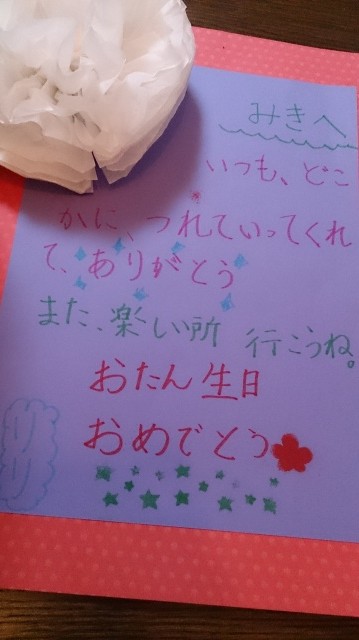 みきへ
いつも、どこ
かに、つれていってくれ
て、ありがとう
また、楽しい所 行こうね。
おたん生日
おめでとう
リリ